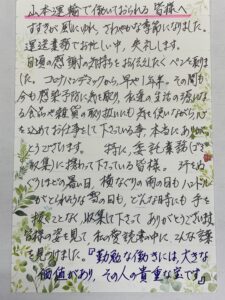 山本運輸で働いておられる皆様へ
すすきが風にゆれ、さわやかな季節になりました。
運送業務でお忙しい中、失礼します。
日頃の感謝の気持をお伝えしたくペンを執りまし
た。コロナパンデミックから早や1年半。その間も
今も感染予防に気を配り、私達の生活の源になる
食品や雑貨の取扱いにも気を使いながら心
を込めてお仕事をして下さっている事、本当にありがと
うございます。 特に、委託業務(ゴミ
収集)に携わって下さっている皆様。 汗をぬ
ぐうほどの暑い日、横なぐりの雨の日も ハンドル
がとられそうな雪の日も、どんな時にも 手を
抜くことなく、収集して下さって ありがとうございます。
皆様の姿を見て、私の愛読書の中に、こんな言葉
を見つけました。『勤勉な働きには、大きな
価値があり、その人の貴重な宝です』